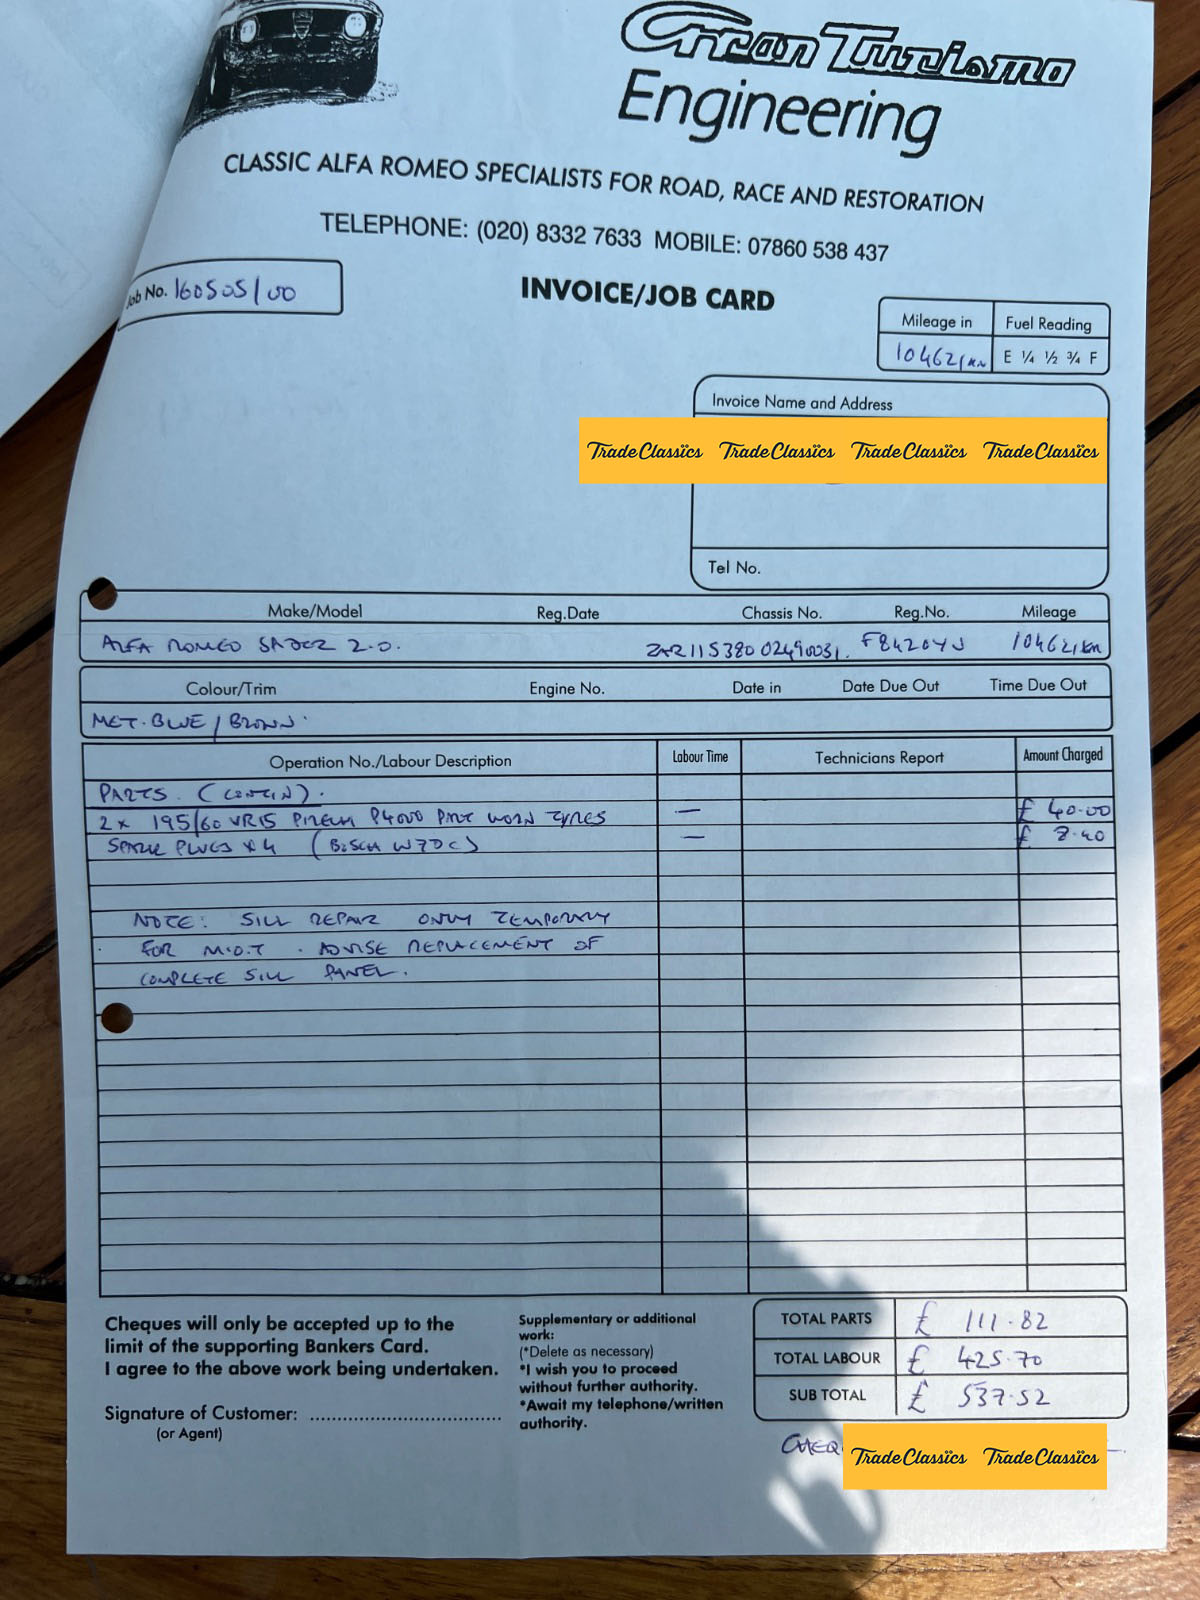 Gran Turismo
Engineering
CLASSIC ALFA ROMEO SPECIALISTS FOR ROAD, RACE AND RESTORATION
TELEPHONE: (020) 8332 7633 MOBILE: 07860 538 437
Job No. 160505/00
INVOICE/JOB CARD
Mileage in Fuel Reading
104621KM E ¼ ½ ¾ F
Invoice Name and Address
TradeClassics TradeClassics TradeClassics TradeClassics
Tel No.
Make/Model Reg.Date Chassis No. Reg.No. Mileage
ALFA ROMEO SPIDER 2.0. ZAR115380 02490031. F842OYJ 104621KM
Colour/Trim Engine No. Date in Date Due Out Time Due Out
MET. BLUE / BROWN.
Operation No./Labour Description Labour Time Technicians Report Amount Charged
PARTS. (CONTIN).
2 x 195/60 VR15 PIRELLI P4000 PART WORN TYRES — £ 40.00
SPARK PLUGS x 4 (BOSCH W7DC) — £ 8.40
NOTE: SILL REPAIR ONLY TEMPORARY
FOR M.O.T. ADVISE REPLACEMENT OF
COMPLETE SILL PANEL.
Cheques will only be accepted up to the
limit of the supporting Bankers Card.
I agree to the above work being undertaken.
Signature of Customer:
(or Agent)
Supplementary or additional
work:
(*Delete as necessary)
*I wish you to proceed
without further authority.
*Await my telephone/written
authority.
TOTAL PARTS £ 111.82
TOTAL LABOUR £ 425.70
SUB TOTAL £ 537.52
TradeClassics TradeClassics